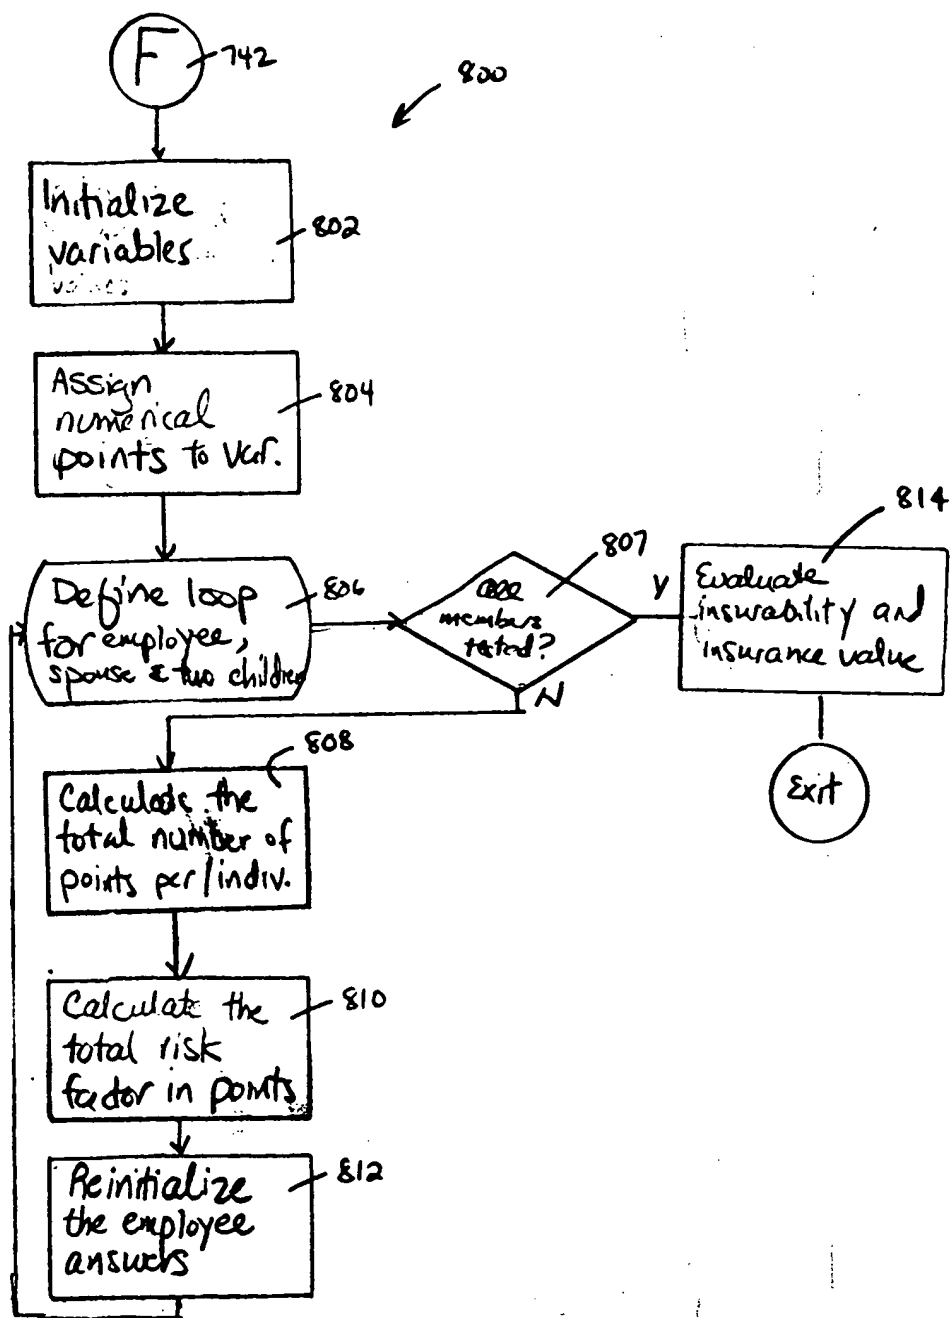 F
742
800
Initialize
variables
802
Assign
numerical
points to var.
804
Define loop
for employee,
spouse & two children
806
all
members
tested?
807
Y
N
Evaluate
insurability and
insurance value
814
Exit
Calculate the
total number of
points per/indiv.
808
Calculate the
total risk
factor in points
810
Reinitialize
the employee
answers
812